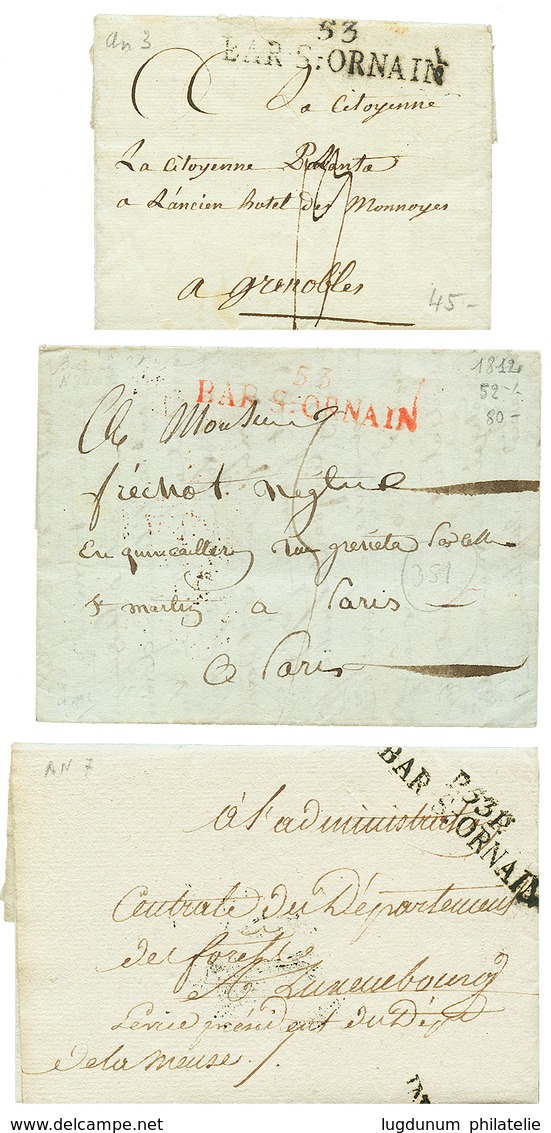 An 3
53
BAR-S-ORNAIN
La Citoyenne
La Citoyenne
a L'ancien hotel des Monnoyes
a grenobles
45-
1812
52-
80-
53
BAR-S-ORNAIN
A Monsieur
fréchot négt
En quincaillerie rue greneta
351
St martin a Paris
a Paris
AN 7
P53P
BAR-S-ORNAIN
à l'administration
Centrale du Département
des forests
A Luxembourg
Le vice président du Dépt
de la meuse
delcampe.net
lugdunum philatelie